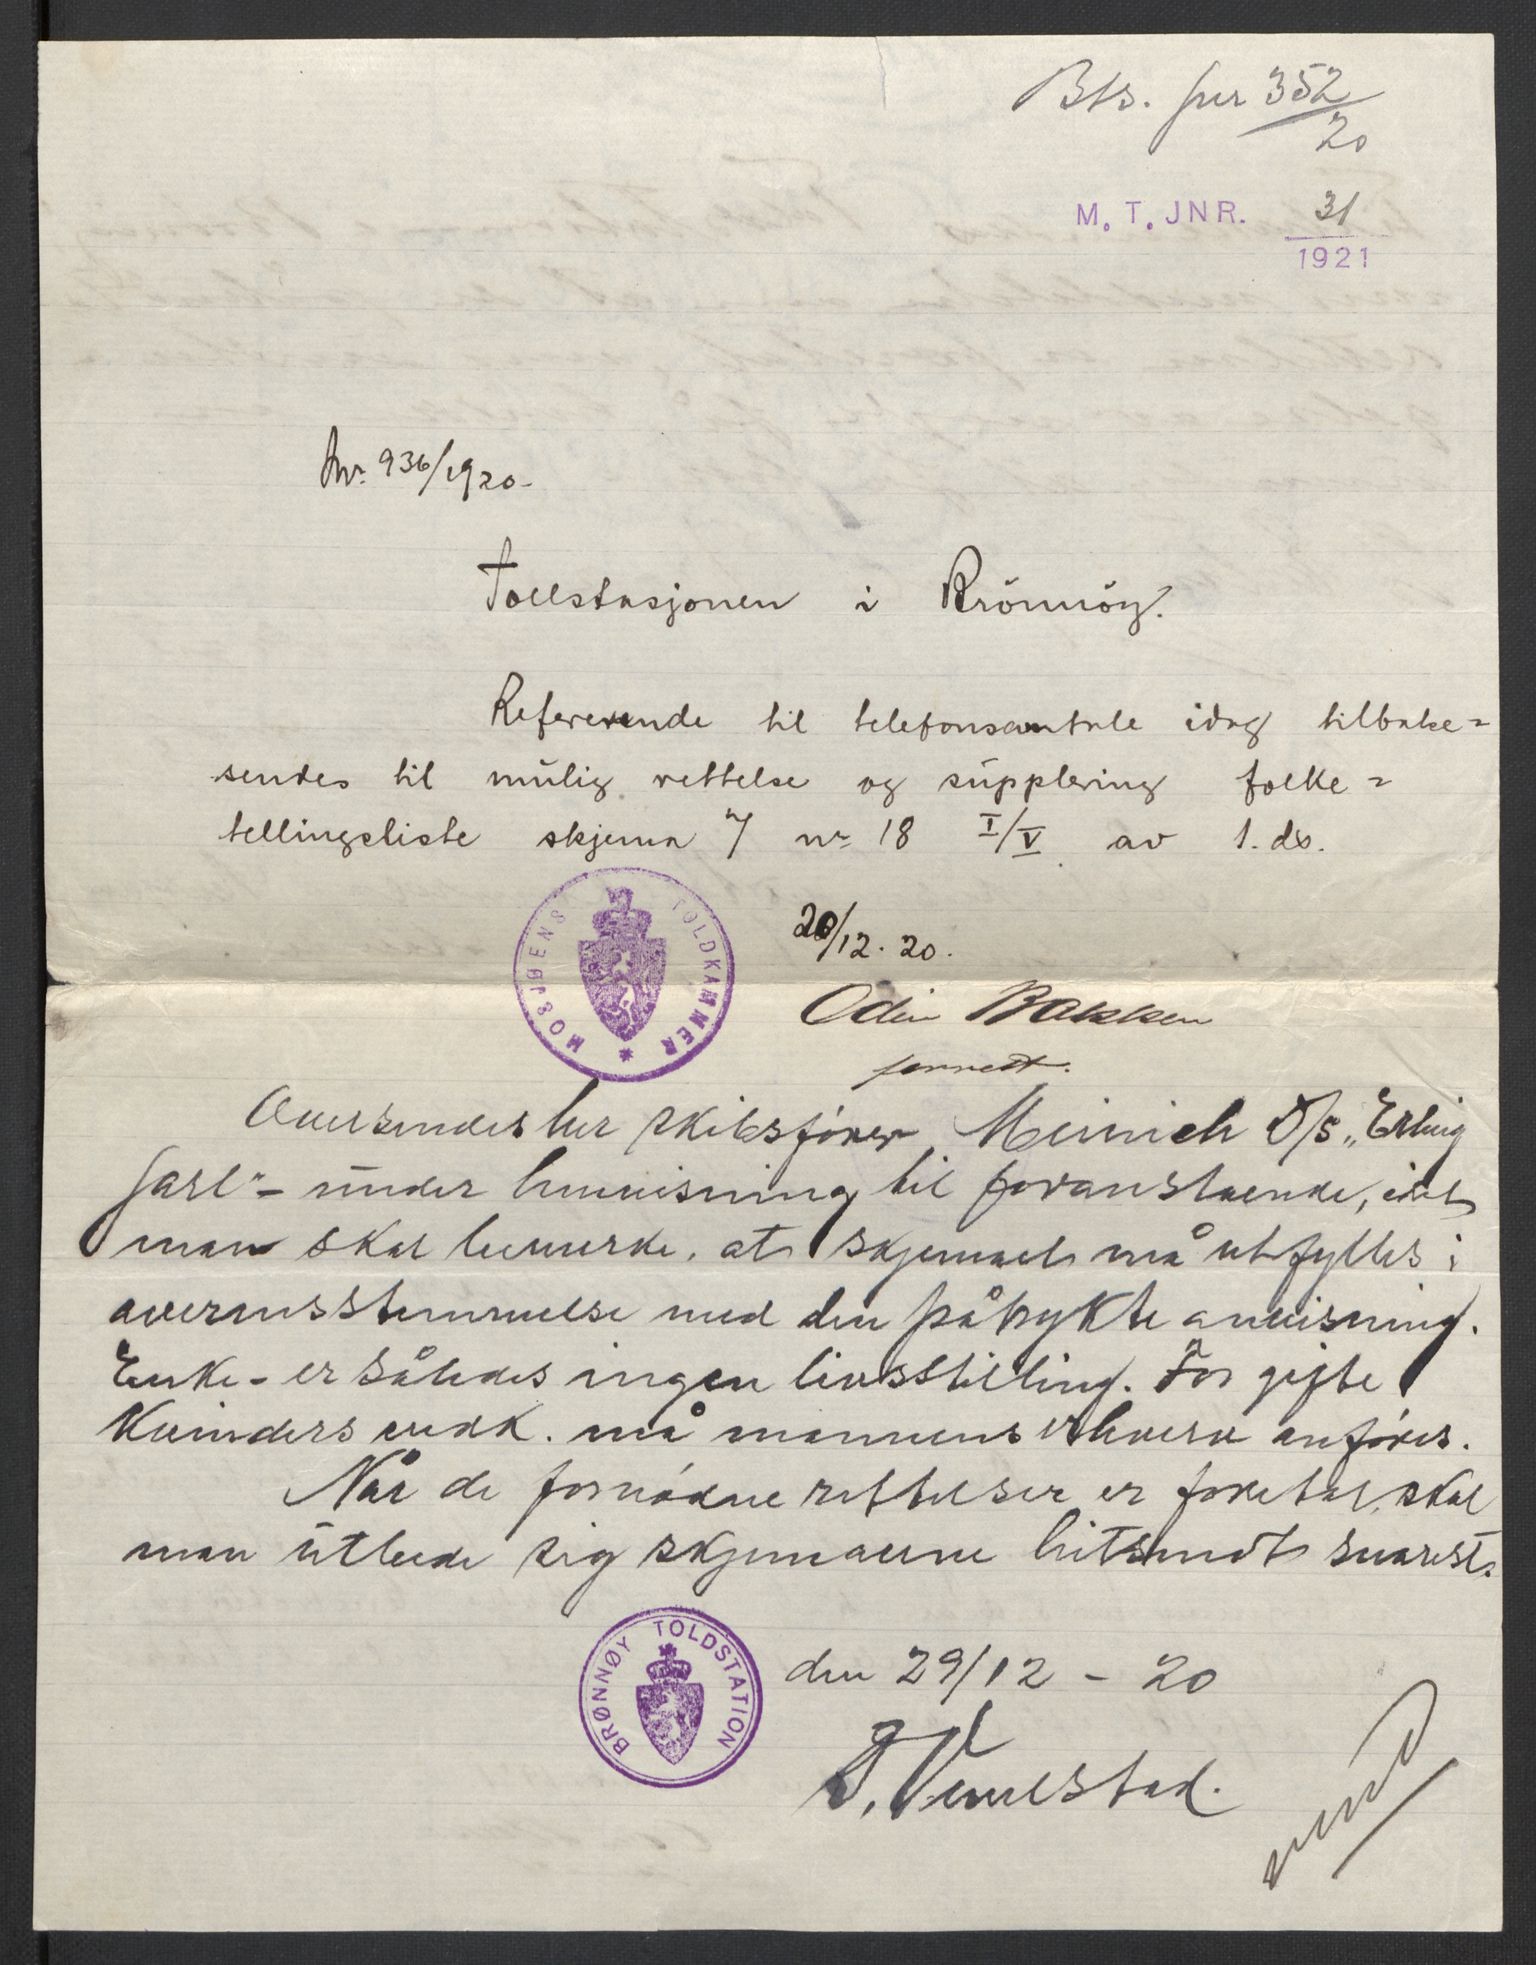 Bts. jnr 352/20
M. T. JNR. 31/1921
Jnr. 936/1920.
Tollstasjonen i Brönnöy.
Refererende til telefonsamtale idag tilbake=
sendes til mülig rettelse og süpplering folke=
tellingsliste skjema 7 nr 18 I/V av 1. ds.
MOSJØENS TOLDKAMMER
20/12. 20.
Odin Bakken
Oversendes her skibsfører Meinich D/S "Erling
Jarl" - ünder henvisning til foranstaaende, idet
man skal bemerke, at skjemaet må utfylles i
overensstemmelse med den påtrykte anvisning.
Enke - er således ingen livsstilling. For gifte
kvinders vedk. må mannens erhverv anføres.
Når de fornødne rettelser er foretat, skal
man ütbede sig skjemaerne hitsendt snarest.
BRØNNØY TOLDSTATION
den 29/12 - 20